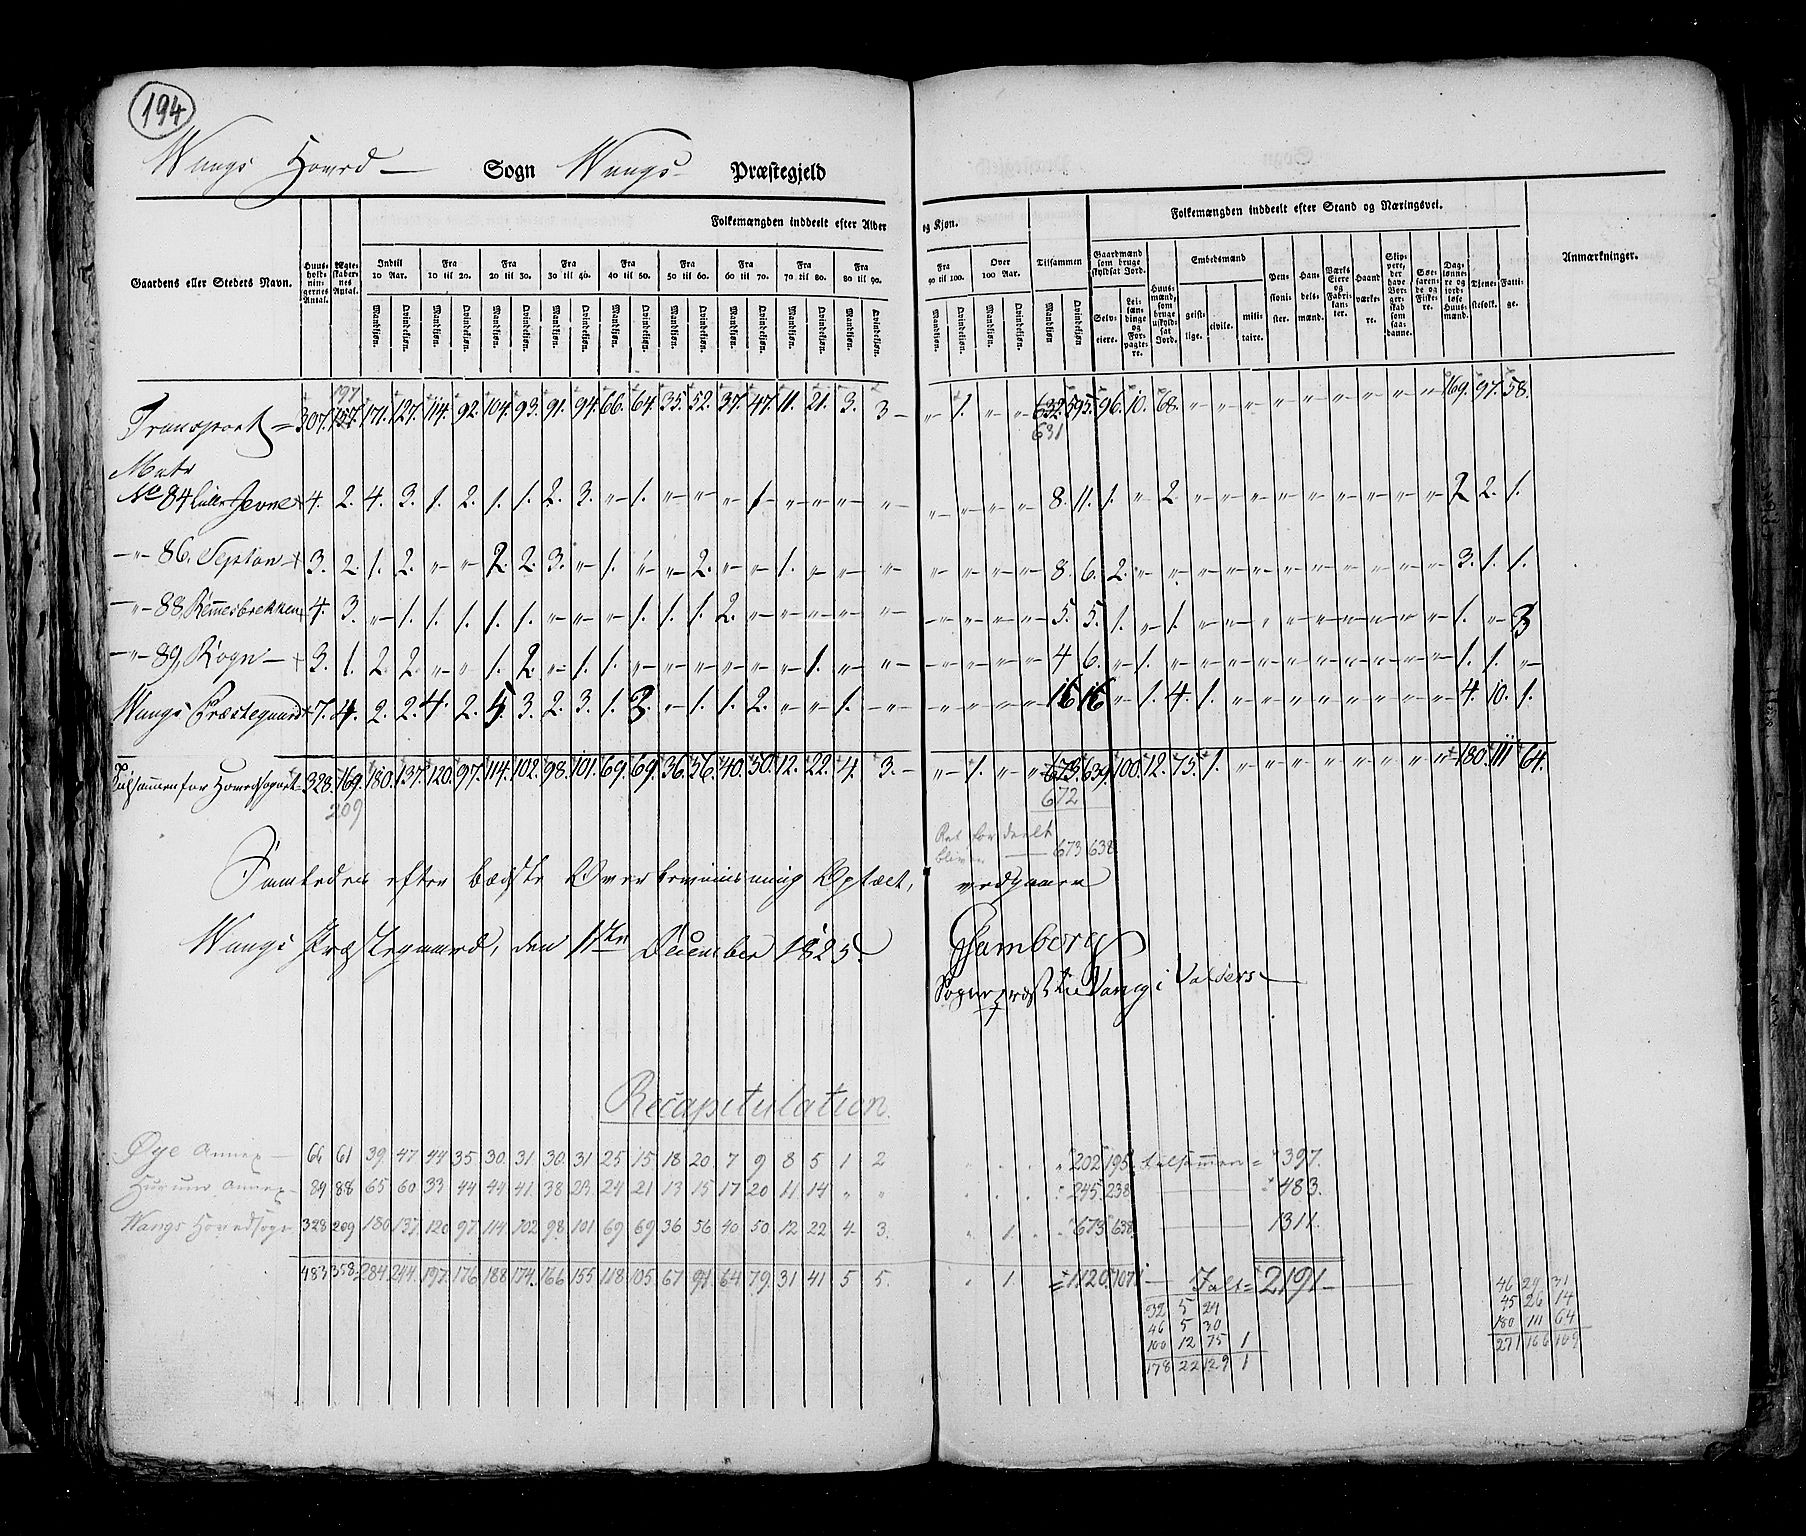 194
Wangs Hoved — Sogn Wangs Præstegjeld
Folkemængden inddeelt efter Alder og Kjøn. Tilsammen Folkemængden inddeelt efter Stand og Næringsvei.
Gaardens eller Stedets Navn. Huusholdningernes Antal. Ægteskabernes Antal. Indtil 10 Aar. Fra 10 til 20. Fra 20 til 30. Fra 30 til 40. Fra 40 til 50. Fra 50 til 60. Fra 60 til 70. Fra 70 til 80. Fra 80 til 90. Fra 90 til 100. Over 100 Aar. Gaardmænd som bruge skyldsat Jord. Huusmænd, som bruge uskyldsat Jord. Embedsmænd Pensionister. Handelsmænd. Værks Eiere og Fabrikanter. Haandværkere. Skippere, der have Borgerskab som saadanne. Søefarende og Fiskere. Daglønnere og jordløse Huusmænd. Tjenestefolk. Fattige. Anmærkninger.
Mandkjøn. Qvindekjøn. Mandkjøn. Qvindekjøn. Mandkjøn. Qvindekjøn. Mandkjøn. Qvindekjøn. Mandkjøn. Qvindekjøn. Mandkjøn. Qvindekjøn. Mandkjøn. Qvindekjøn. Mandkjøn. Qvindekjøn. Mandkjøn. Qvindekjøn. Mandkjøn. Qvindekjøn. Mandkjøn. Qvindekjøn. Mandkjøn. Qvindekjøn. Selveiere. Leilændinge og Forpagtere. geistlige. civile. militaire.
197
Transport = 307. 157. 171. 127. 114. 92. 104. 93. 91. 94. 66. 64. 35. 52. 37. 47. 11. 21. 3. 3 — " 1. " " 632. 595. 96. 10. 68. " " " " " " " " " 169. 97. 58.
631
Matr
No 84 Lille Jevne 4. 2. 4. 3. 1. 2. 1. 1. 2. 3. " 1. " " " 1 " " " " " " " " 8. 11. 1. " 2 " " " " " " " " " 2 2. 1.
" 86. 3. 2. 1. 2. " " 2. 2. 3. " 1. " " 2. " " 1. " " " " " " " 8. 6. 2. " " " " " " " " " " " 3. 1. 1.
" 88. Remesbrekken 4. 3. " 1. 1. 1. 1. 1. " " " 1. 1. 1. 2. " " " " " " " " " 5. 5. 1. " 1. " " " " " " " " " 1. " 3
" 89. Rogn 3. 1. 2. 2. " " 1. 2. " 1. 1. " " " " " " 1. " " " " " " 4 6. " 1. " " " " " " " " " " 1. 1. "
Wangs Præstegaard 7. 4. 2. 2. 4. 2. 5. 3. 2. 3. 1. 3. " 1. 1. 2. " " 1. " " " " " 16 16 " 1. 4. 1. " " " " " " " " 4. 10. 1.
Tilsammen for Hovedsognet 328. 169. 180. 137. 120. 97. 114. 102. 98. 101. 69. 69. 36. 56. 40. 50. 12. 22. 4. 3. — " 1. " " 673. 639. 100. 12. 75. 1. " " " " " " " " 180. 111 64.
209 672
Ret fordeelt
bliver — 673 638
Saaledes efter bedste Overbeviisning Optaget, vedgaaer
Wangs Præstegaard, den 11te December 1825.
Sognepræst til Vang i Valders —
Recapitulation
Øye Annex — 66 61 39. 47 44 35. 30. 31. 30. 31 25 15 18 20. 7 9 8 5 1 2 " . . " 202 195. tilsammen = 397.
Hurum Annex — 89 88 65 60 33 44 44 41. 38 23. 24 21 13 15 17 20 11 14 " " " . . " 245. 238. — 483.
Wangs Hovedsogn 328 209 180 137. 120 97 114. 102 98. 101 69 69 36 56 40 50 12 22 4. 3. " 1. . " 673 638. — 1311.
483 358. 284. 244. 197. 176 188 174. 166 155 118 105 67 91 64 79. 31 41 5 5. " 1. = 1120. 1071 — Ialt = 2191 —
32 5 24 46 24 31
46 5 30 45 26 14
100 12 75 1 180 111 64
178 22 129 1 271 166 109